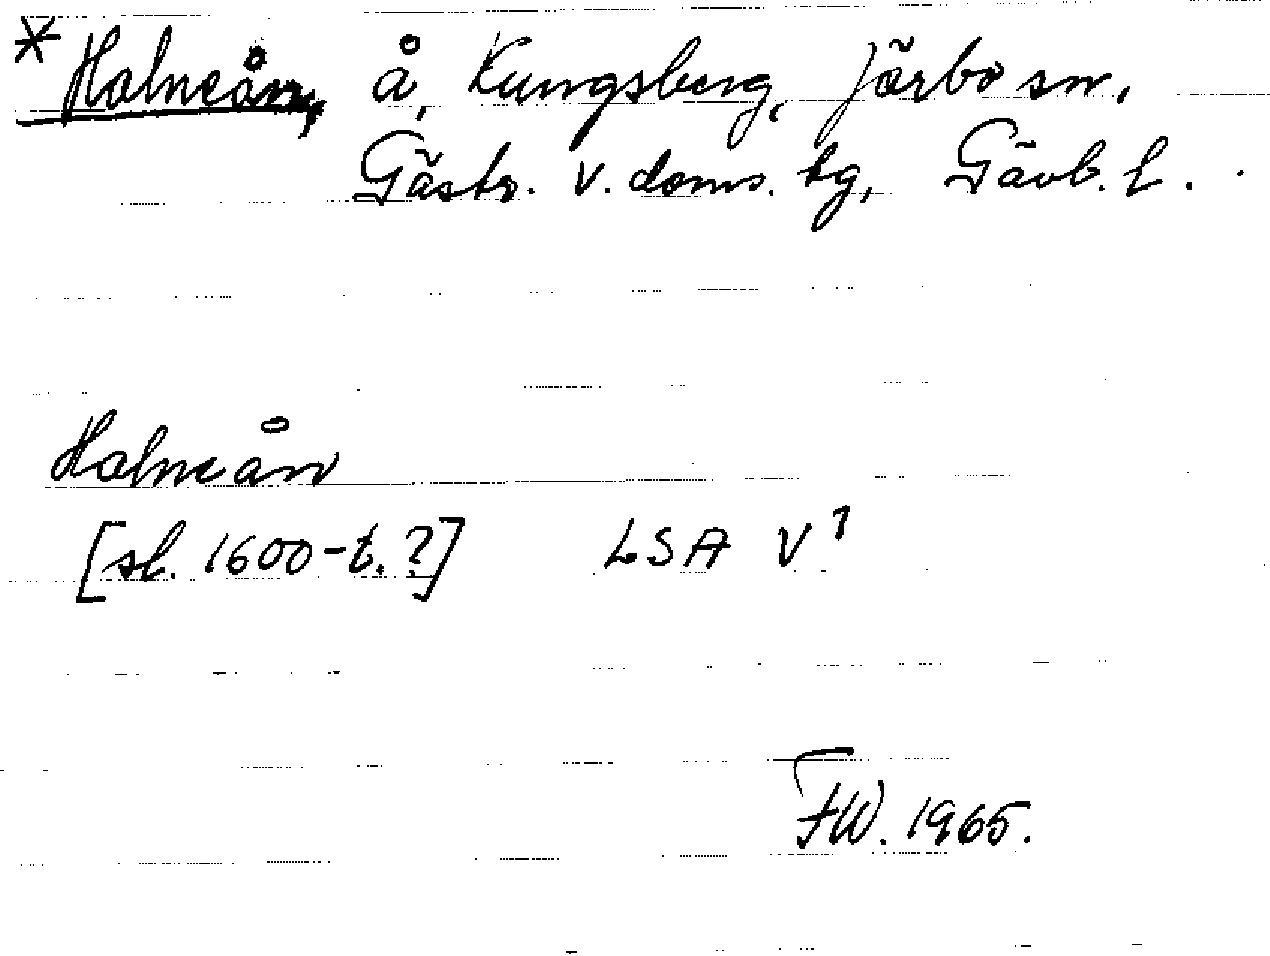 * Halneån, å, Kungsberg, Järbo sn,
Gästr. v. doms. tg, Gävb. l.
Halneån
[sl. 1600-t.?] LSA V 1
FW. 1965.